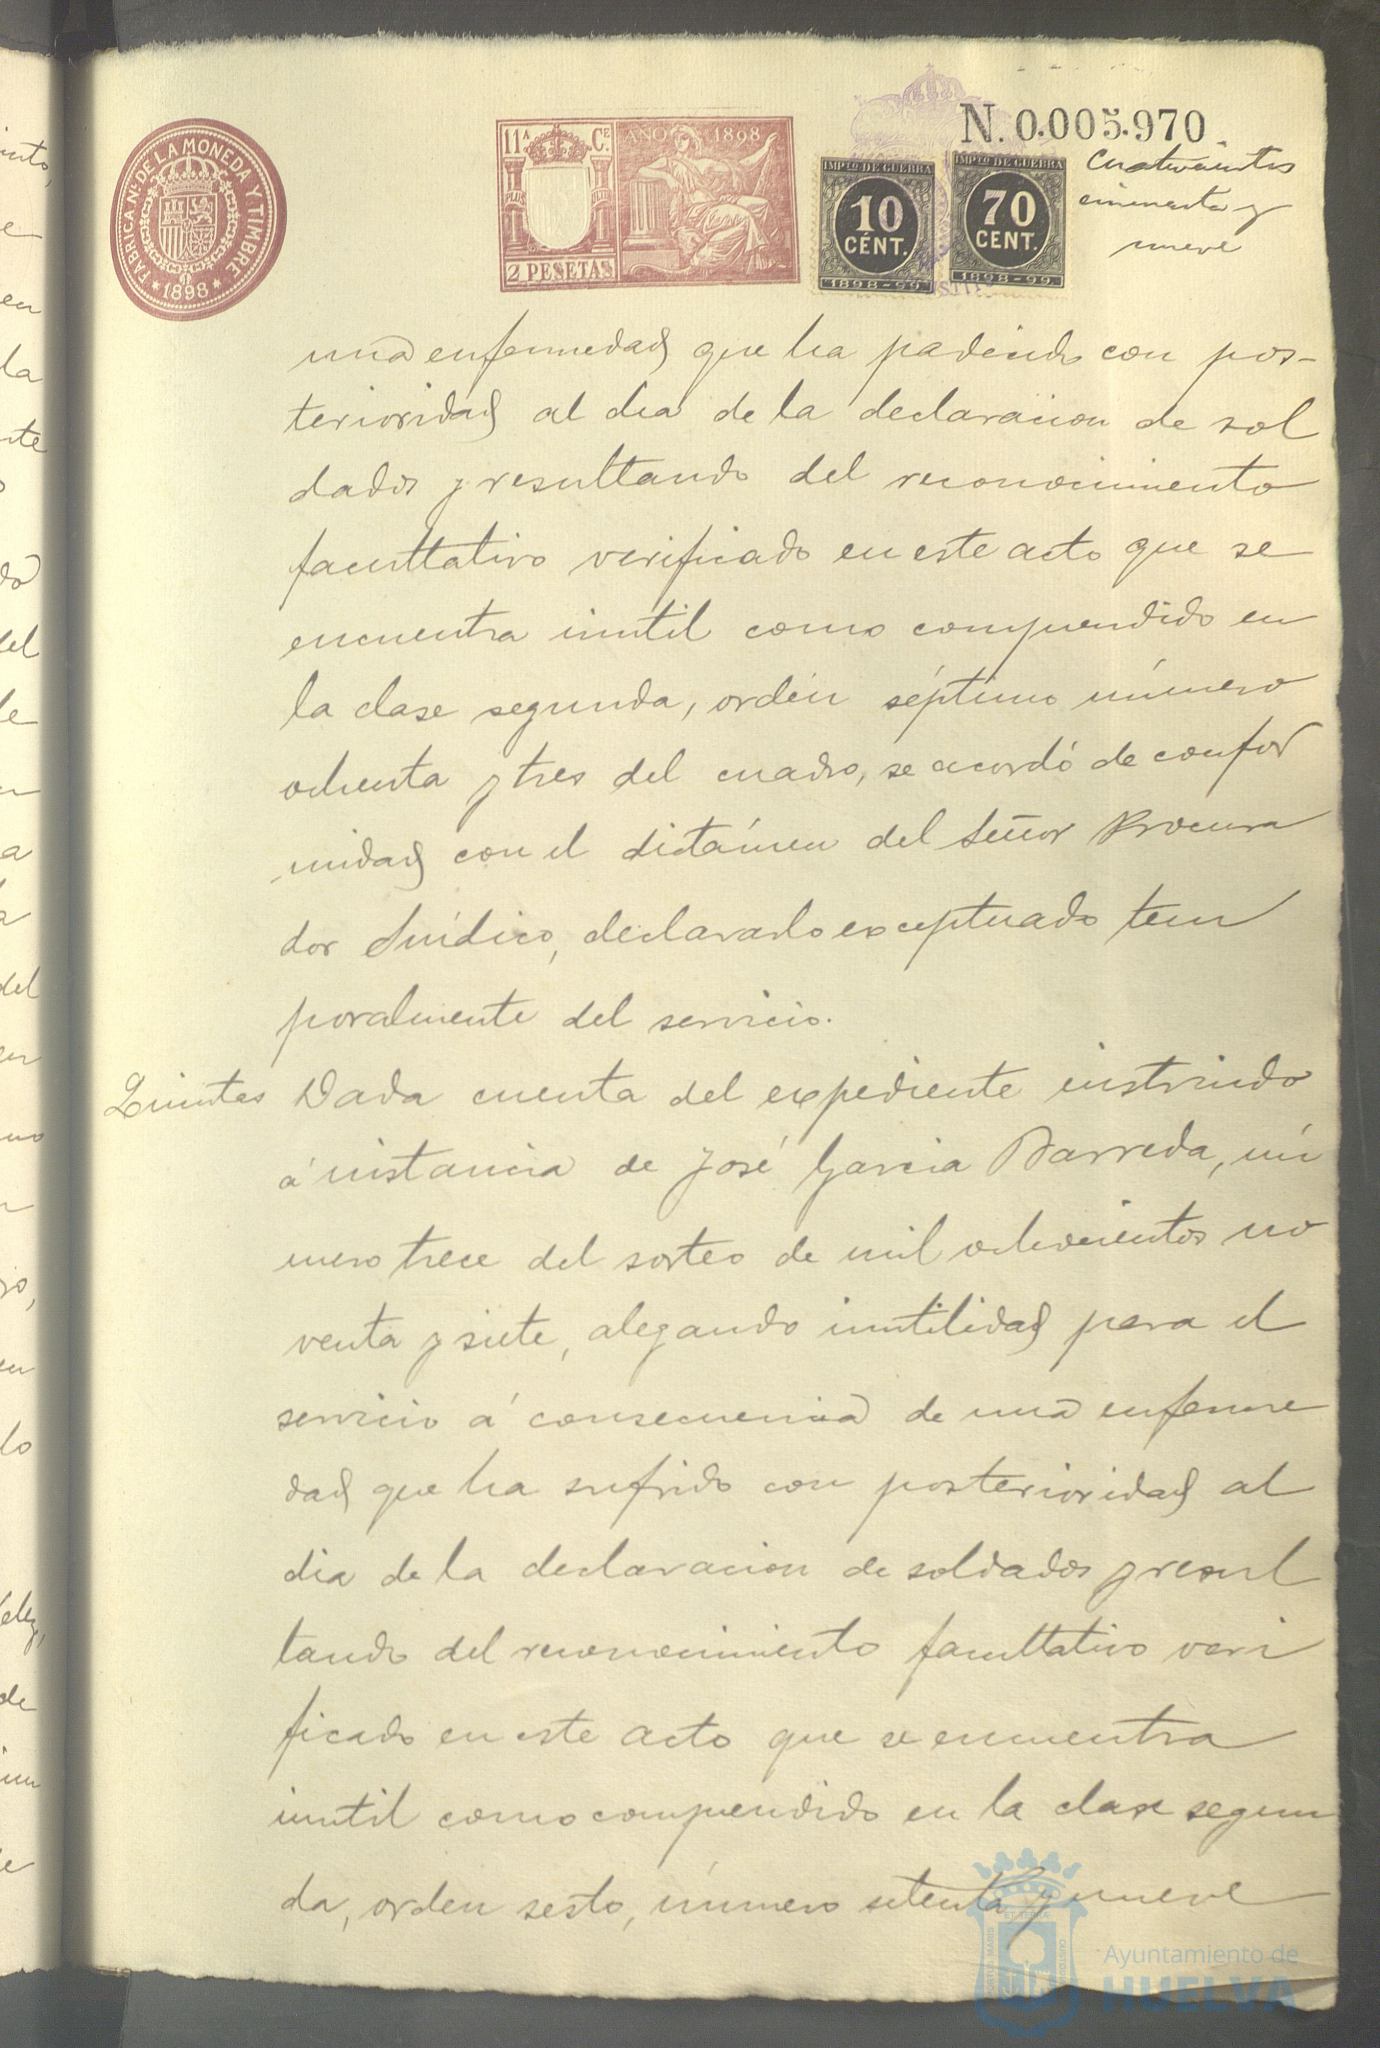 FABRICA NL. DE LA MONEDA Y TIMBRE
* 1898 *
11A CE.
AÑO 1898
PLUS ULTRA
2 PESETAS
IMPTO DE GUERRA
10
CÉNT.
1898-99
IMPTO DE GUERRA
70
CENT.
1898-99
N. 0.005.970
Cuatrocientos
cincuenta y
nueve
una enfermedad que ha padecido con pos-
terioridad al dia de la declaracion de sol
dados y resultando del reconocimiento
facultativo verificado en este acto que se
encuentra inutil como comprendido en
la clase segunda, ordén séptimo número
ochenta y tres del cuadro, se acordó de confor
midad con el dictámen del Señor Procura
dor Síndico, declararlo exceptuado tem
poralmente del servicio.
Quintas Dada cuenta del expediente instruido
á instancia de José Garcia Barreda, nú
mero trece del sorteo de mil ochocientos no
venta y siete, alegando inutilidad para el
servicio á consecuencia de una enferme
dad que ha sufrido con posterioridad al
dia de la declaracion de soldados y resul
tando del reconocimiento facultativo veri
ficado en este acto que se encuentra
inutil como comprendido en la clase segun
da, orden sesto, número setenta y nueve
Ayuntamiento de
HUELVA